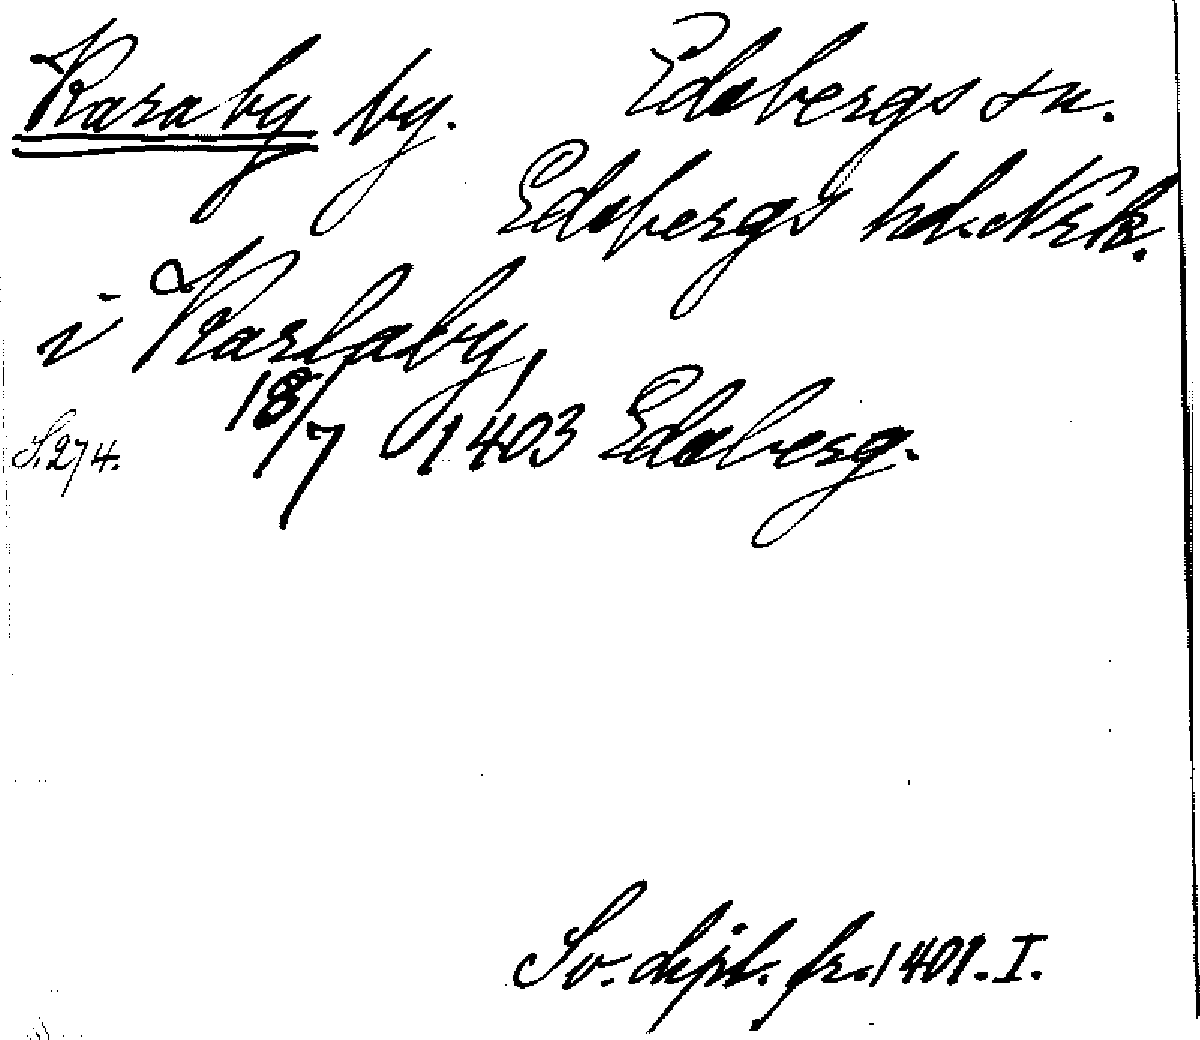 Karaby by. Edsbergs sn.
Edsbergs hd. Nrk.
i Karlaby,
S. 274. 18/7 1403 Edsberg.
Sv. dipl. fr. 1401. I.